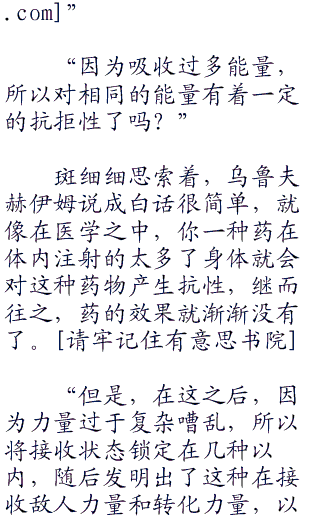 .com]”
“因为吸收过多能量，
所以对相同的能量有着一定
的抗拒性了吗？”
斑细细思索着，乌鲁夫
赫伊姆说成白话很简单，就
像在医学之中，你一种药在
体内注射的太多了身体就会
对这种药物产生抗性，继而
往之，药的效果就渐渐没有
了。[请牢记住有意思书院]
“但是，在这之后，因
为力量过于复杂嘈乱，所以
将接收状态锁定在几种以
内，随后发明出了这种在接
收敌人力量和转化力量，以